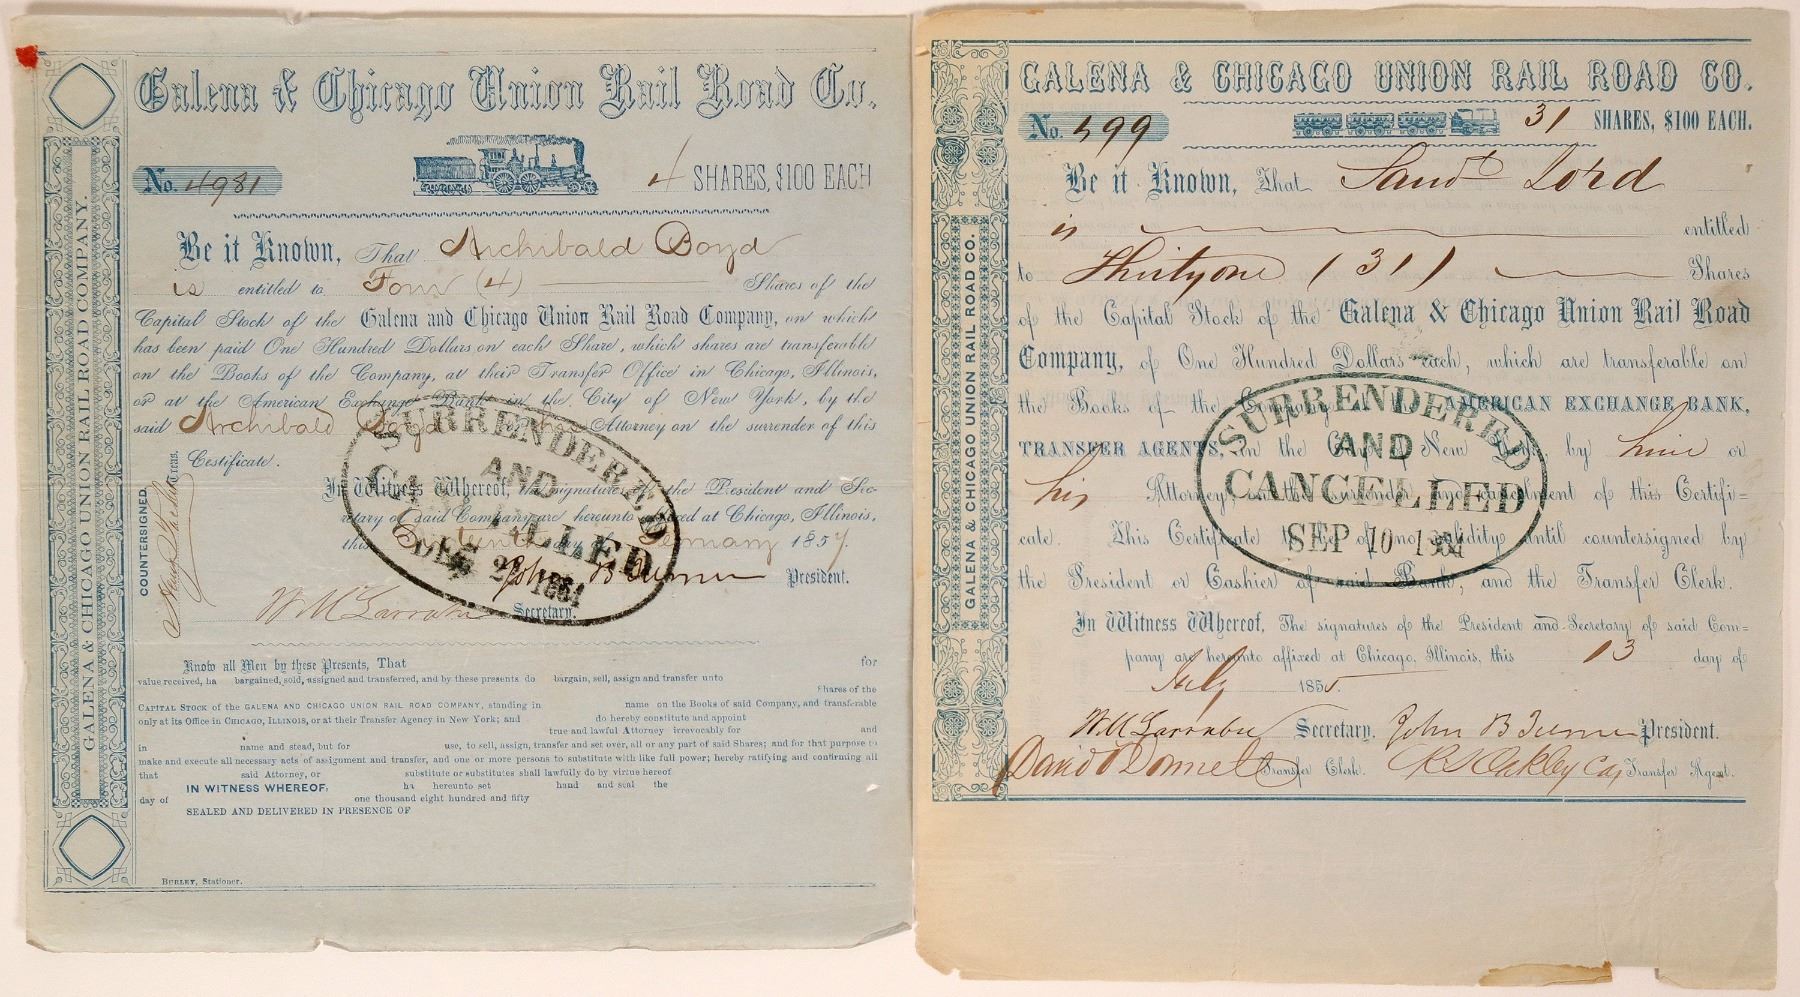 Galena & Chicago Union Rail Road Co.
No. 4981
4 SHARES, $100 EACH
Be it Known, That Archibald Boyd
is entitled to Four (4) Shares of the
Capital Stock of the Galena and Chicago Union Rail Road Company, on which
has been paid One Hundred Dollars on each Share, which shares are transferable
on the Books of the Company, at their Transfer Office in Chicago, Illinois,
or at the American Exchange Bank in the City of New York, by the
said Archibald Boyd or his Attorney on the surrender of this
Certificate.
In Witness Whereof, the signatures of the President and Sec-
retary of said Company are hereunto affixed at Chicago, Illinois,
this day of February 1857.
John B Turner President.
W M Larrabee Secretary.
COUNTERSIGNED
Treas.
SURRENDERED
AND
CANCELLED
DEC 1864
GALENA & CHICAGO UNION RAIL ROAD COMPANY.
GALENA & CHICAGO UNION RAIL ROAD COMPANY.
Know all Men by these Presents, That for
value received, ha bargained, sold, assigned and transferred, and by these presents do bargain, sell, assign and transfer unto
Shares of the
CAPITAL STOCK OF THE GALENA AND CHICAGO UNION RAIL ROAD COMPANY, standing in name on the Books of said Company, and transferable
only at its Office in CHICAGO, ILLINOIS, or at their Transfer Agency in New York; and do hereby constitute and appoint
true and lawful Attorney irrevocably for and
in name and stead, but for use, to sell, assign, transfer and set over, all or any part of said Shares; and for that purpose to
make and execute all necessary acts of assignment and transfer, and one or more persons to substitute with like full power; hereby ratifying and confirming all
that said Attorney, or substitute or substitutes shall lawfully do by virtue hereof
IN WITNESS WHEREOF, ha hereunto set hand and seal the
day of one thousand eight hundred and fifty
SEALED AND DELIVERED IN PRESENCE OF
BURLEY, Stationer.
GALENA & CHICAGO UNION RAIL ROAD CO.
No. 599
31 SHARES, $100 EACH.
Be it Known, That Saml Lord
is entitled
to Thirty one (31) Shares
of the Capital Stock of the Galena & Chicago Union Rail Road
Company, of One Hundred Dollars each, which are transferable on
the Books of the Company at the AMERICAN EXCHANGE BANK,
TRANSFER AGENTS, in the City of New York, by him or
his Attorney, on the surrender and cancelment of this Certifi-
cate. This Certificate to be of no validity until countersigned by
the President or Cashier of said Bank, and the Transfer Clerk.
In Witness Whereof, The signatures of the President and Secretary of said Com-
pany are hereunto affixed at Chicago, Illinois, this 13 day of
July 1855.
W M Larrabee Secretary. John B Turner President.
David O Donnell Transfer Clerk. R S Oakley Cas Transfer Agent.
SURRENDERED
AND
CANCELLED
SEP 10
GALENA & CHICAGO UNION RAIL ROAD CO.
GALENA & CHICAGO UNION RAIL ROAD CO.